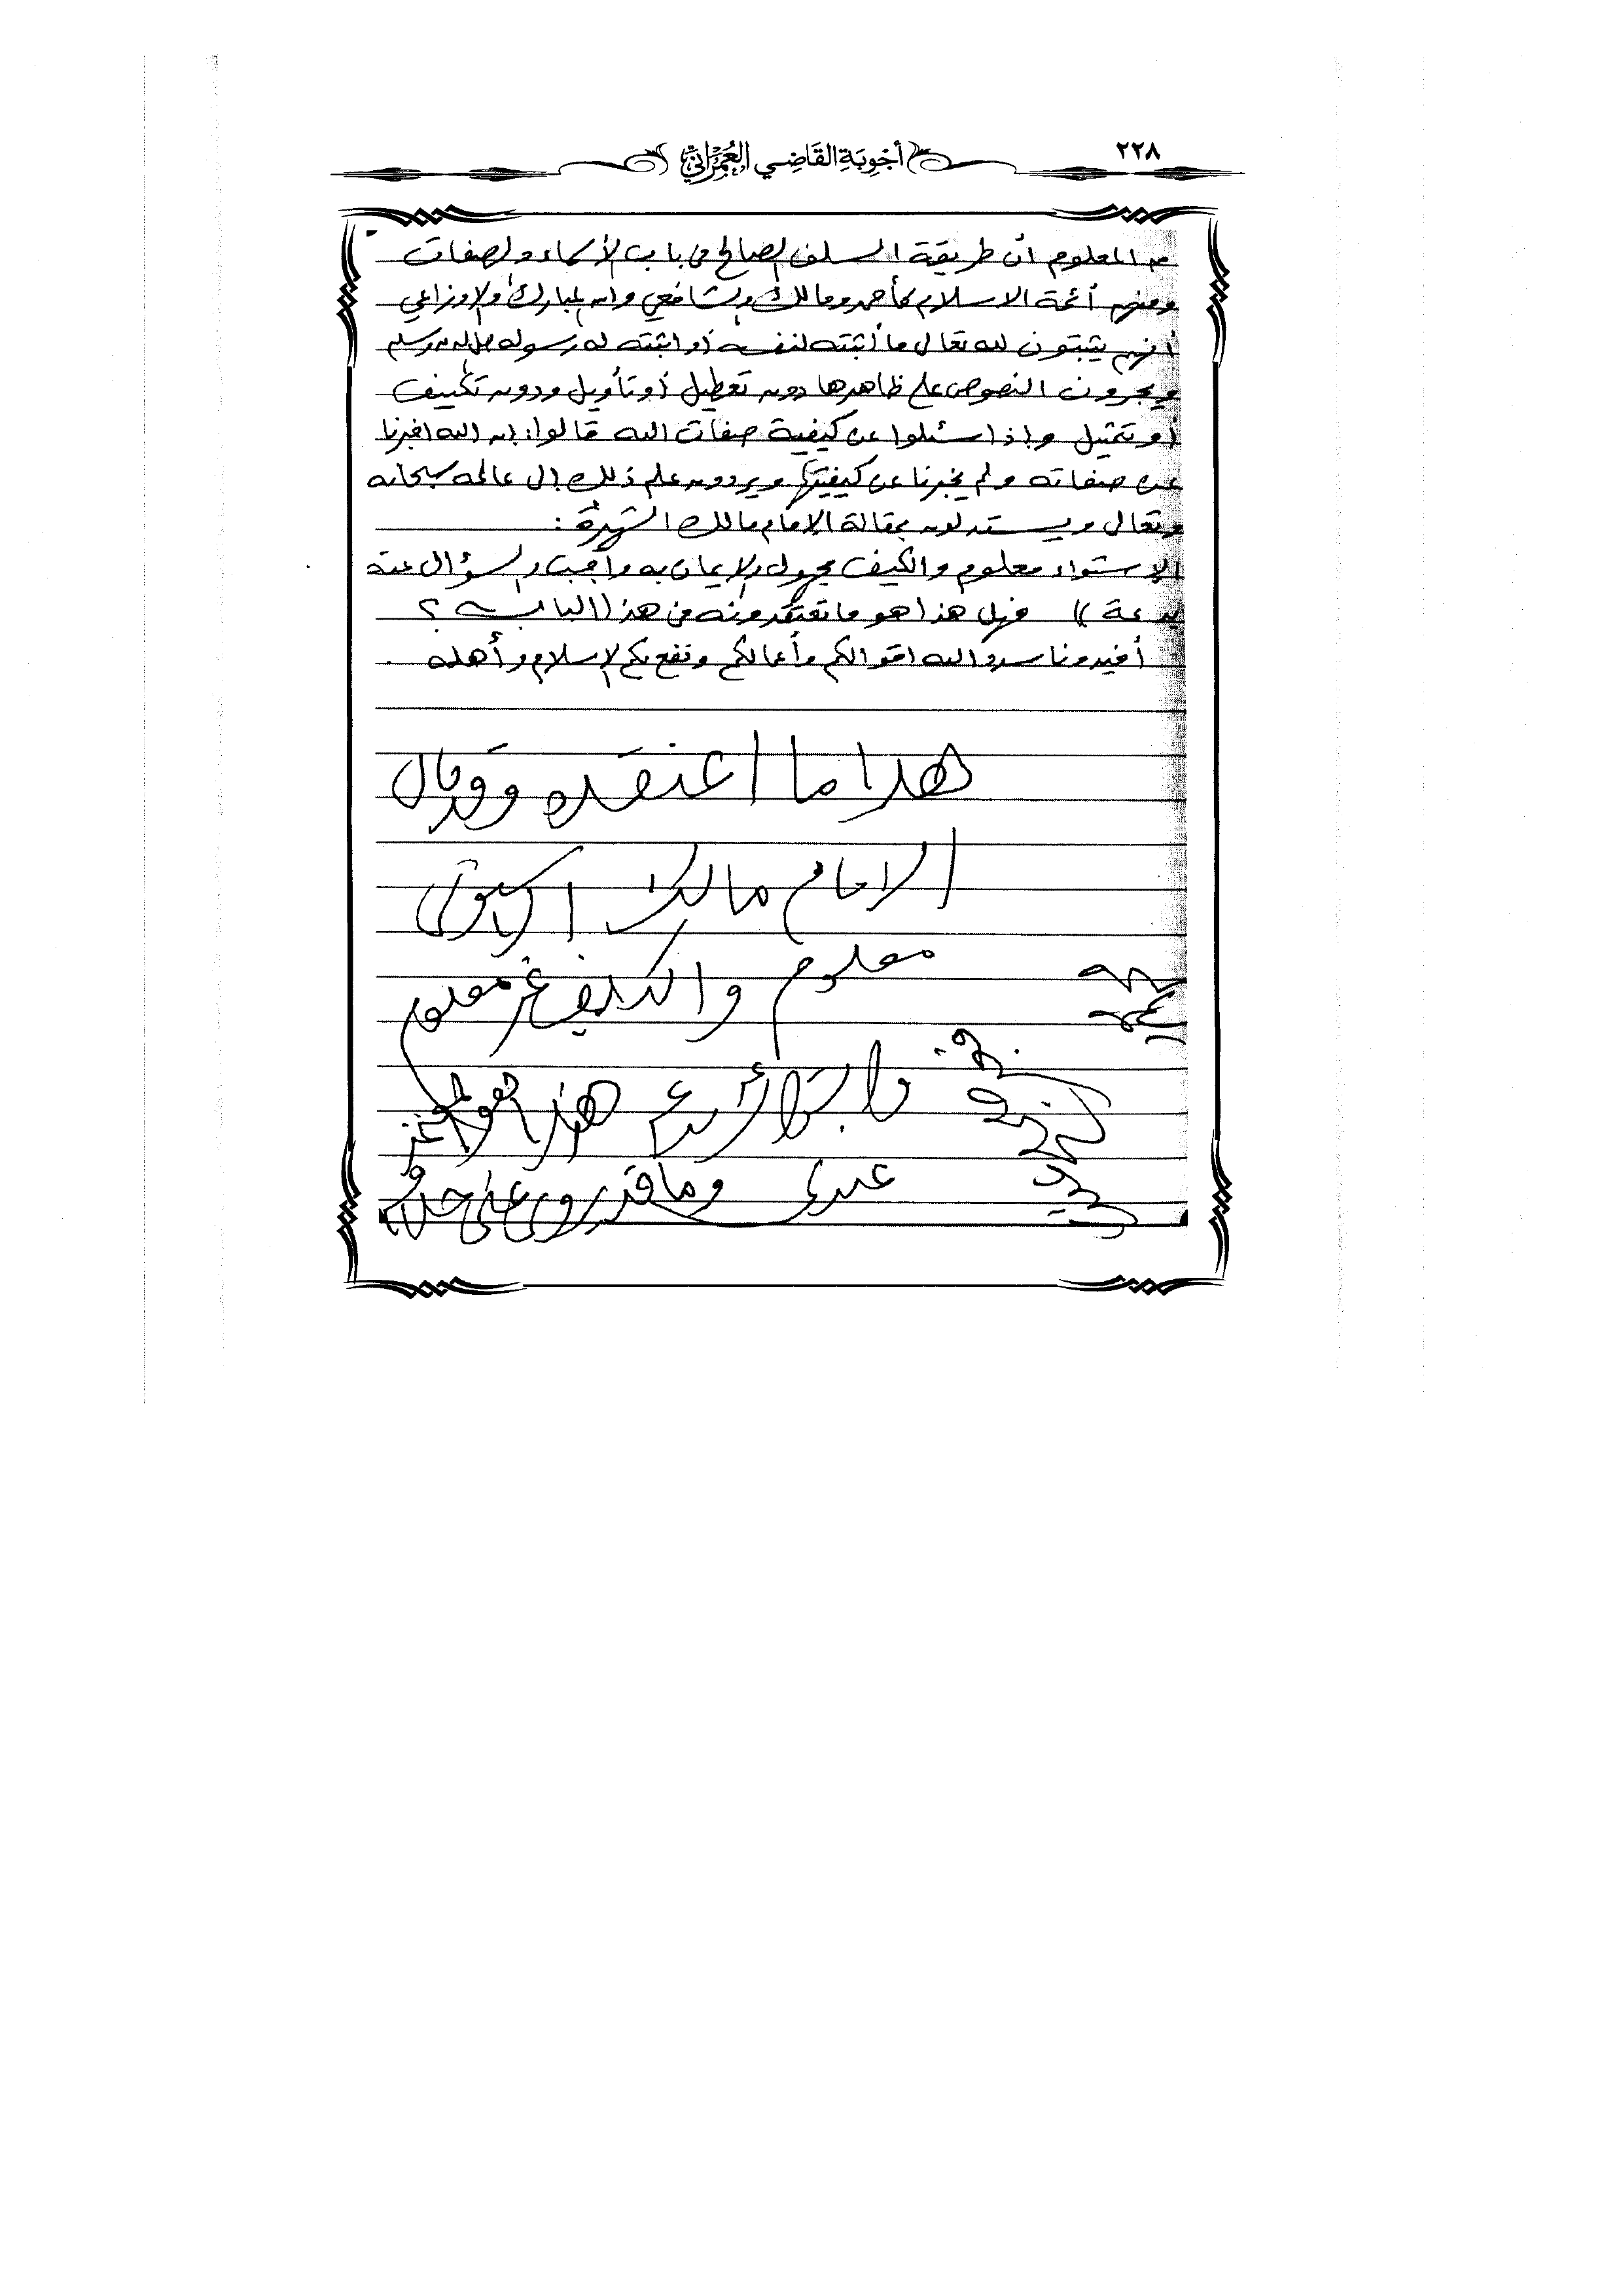 ٢٢٨
أَجْوِبَةِ القَاضِي العُمْرَانِيّ
من المعلوم أن طريقة السلف الصالح في باب الأسماء والصفات
ومنهم أئمة الاسلام كأحمد ومالك والشافعي وابن المبارك والاوزاعي
أنهم يثبتون لله تعالى ما أثبته لنفسه أو اثبته له رسوله صلى الله عليه وسلم
ويجرون النصوص على ظاهرها دون تعطيل أو تأويل ودون تكييف
أو تمثيل وإذا سئلوا عن كيفية صفات الله قالوا: إن الله اخبرنا
عن صفاته ولم يخبرنا عن كيفيتها ويردون علم ذلك إلى عالمه سبحانه
وتعالى ويستدلون بمقالة الإمام مالك الشهيرة :
الإستواء معلوم والكيف مجهول والإيمان به واجب والسؤال عنه
بدعة )) فهل هذا هو ما تعتقدونه في هذا الباب ؟
أفيدونا سدد الله اقوالكم وأعمالكم ونفع بكم الإسلام وأهله .
هذا ما اعتقده وقد قال
الامام مالك الاستوى
معلوم والكيف غير معلوم
هذا هو
عندي وما قد روي على خلاف